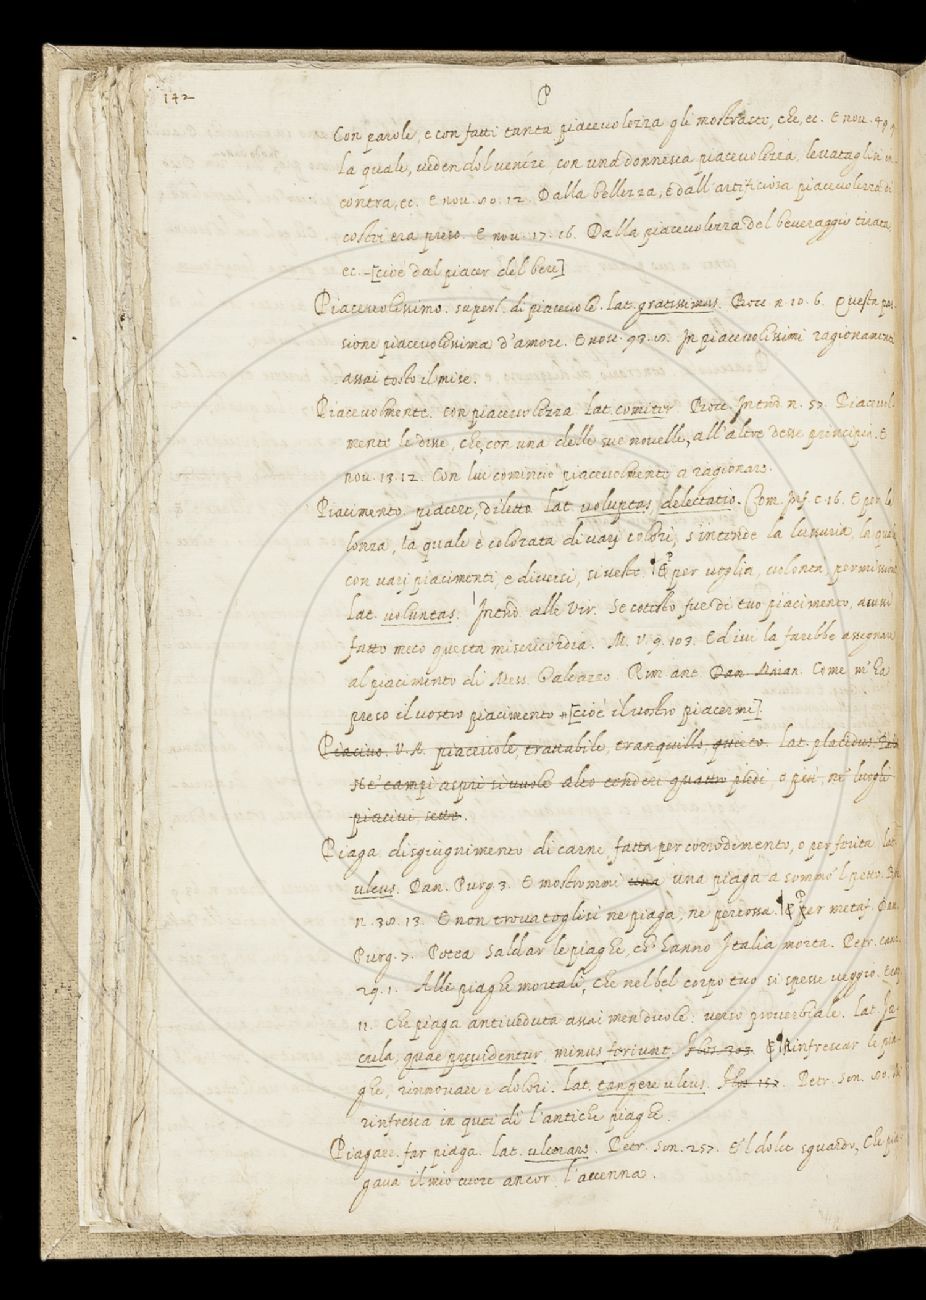 142
P
Con parole, e con fatti tanta piacevolezza gli mostrasse, che, ec. E nov. 49.
la quale, vedendol venire, con una donnesca piacevolezza, levataglisi in-
contra, ec. E nov. 80. 12. Dalla bellezza, e dall'artificiosa piacevolezza di
costei era preso. E nov. 17. 16. Dalla piacevolezza del beveraggio tirata,
ec. [cioè dal piacer del bere]
Piacevolissimo. superl. di piacevole. lat. gratissimus. Bocc. n. 10. 6. Questa pas-
sione piacevolissima d'amore. E nov. 98. In piacevolissimi ragionamenti
assai tosto il mise.
Piacevolmente. con piacevolezza. lat. comiter. Bocc. Introd. n. 57. Piacevol-
mente le disse, che, con una delle sue novelle, all'altre desse principio. E
nov. 13. 12. Con lui cominciò piacevolmente a ragionare.
Piacimento. piacere, diletto. lat. voluptas, delectatio. Com. Inf. c. 16. E per la
lonza, la quale è colorata di varj colori, s'intende la lussuria, la quale
con varj piacimenti, e diversi, si veste. E per voglia, volontà, permissione
lat. voluntas. Introd. alle Vir. Se cotesto fue di tuo piacimento, avresti
fatto meco questa misericordia. M. V. 9. 103. Ed ivi la farebbe assegnare
al piacimento di Mess. Galeazzo. Rim. ant. Dan. Maian. Come m'ha
preso il vostro piacimento [cioè il vostro piacermi]
Piacivo. V. A. piacevole, trattabile, tranquillo, quieto. lat. placidus.
Ne' campi aspri si vuole alto cendere quattro piedi, o più, ne' luoghi
piacivi, sette.
Piaga. disgiugnimento di carne fatta per corrodimento, o per ferita. lat.
ulcus. Dan. Purg. 3. E mostrommi una una piaga a sommo 'l petto. Bocc.
n. 30. 13. E non trovatoglisi nè piaga, nè percossa. E per metaf. Dan.
Purg. 7. Potea saldar le piaghe, ch'hanno Italia morta. Petr. canz.
29. 1. Alle piaghe mortali, che nel bel corpo tuo sì spesse veggio.
11. Che piaga antiveduta assai men duole: verso proverbiale. Lat. Ja-
cula, quae praevidentur, minus feriunt. Flos. 203. E Rinfrescar le pia-
ghe, rinnovare i dolori. lat. tangere ulcus. Flos 157. Petr. Son. 80.
rinfresca in quei dì l'antiche piaghe.
Piagare. far piaga. lat. ulcerans. Petr. Son. 257. E 'l dolce sguardo, Che pia-
gava il mio cuore ancor l'accenna.